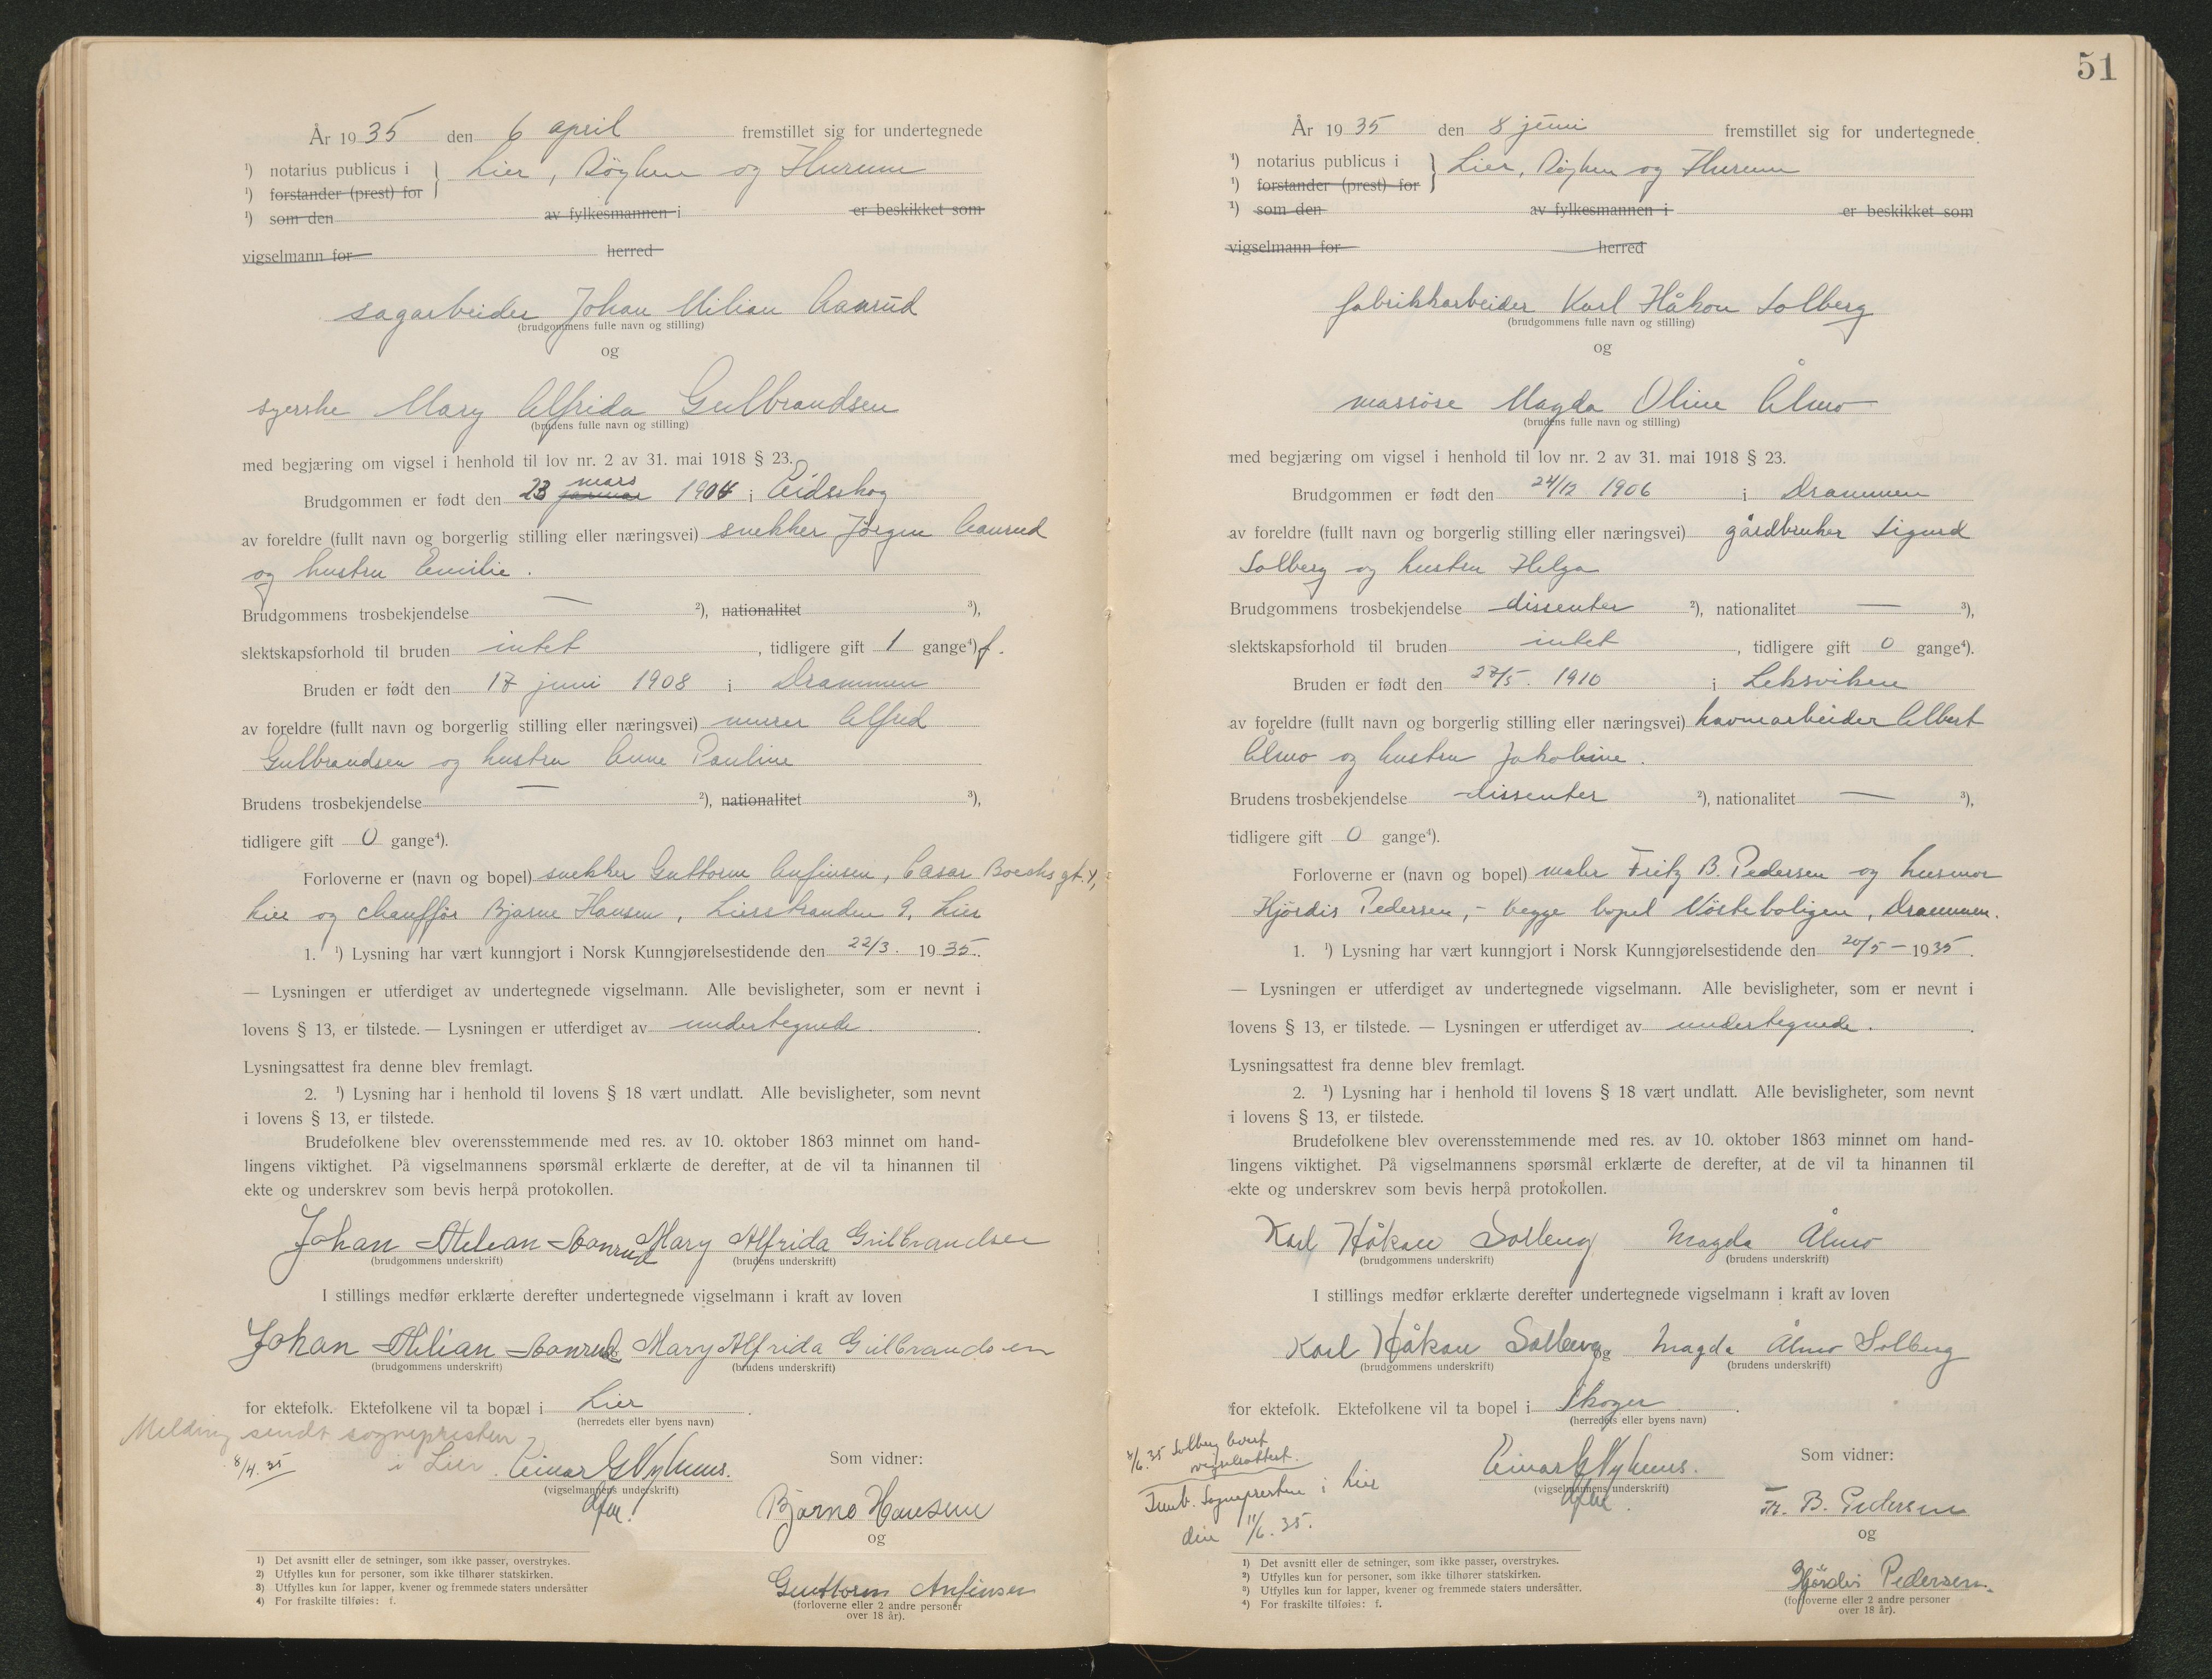 År 1935 den 6 april fremstillet sig for undertegnede
¹) notarius publicus i } Lier, Røyken og Hurum
¹) forstander (prest) for
¹) som den av fylkesmannen i er beskikket som
vigselmann for herred
sagarbeider Johan Milian Aanrud
(brudgommens fulle navn og stilling)
og
syerske Mary Alfrida Gulbrandsen
(brudens fulle navn og stilling)
med begjæring om vigsel i henhold til lov nr. 2 av 31. mai 1918 § 23.
mars
Brudgommen er født den 23 januar 1904 i Eidskog
av foreldre (fullt navn og borgerlig stilling eller næringsvei) snekker Jørgen Aanrud
og hustru Emilie.
Brudgommens trosbekjendelse — ²), nationalitet ³),
slektskapsforhold til bruden intet, tidligere gift 1 gange⁴) f.
Bruden er født den 17 juni 1908 i Drammen
av foreldre (fullt navn og borgerlig stilling eller næringsvei) murer Alfred
Gulbrandsen og hustru Anne Pauline
Brudens trosbekjendelse — ²), nationalitet ³),
tidligere gift 0 gange⁴).
Forloverne er (navn og bopel) snekker Guttorm Anfinsen, Cæsar Boecks gt. 4,
hier og chauffør Bjarne Hansen, Lierstranden 9, Lier
1. ¹) Lysning har vært kunngjort i Norsk Kunngjørelsestidende den 22/3. 1935.
— Lysningen er utferdiget av undertegnede vigselmann. Alle bevisligheter, som er nevnt i
lovens § 13, er tilstede. — Lysningen er utferdiget av undertegnede.
Lysningsattest fra denne blev fremlagt.
2. ¹) Lysning har i henhold til lovens § 18 vært undlatt. Alle bevisligheter, som nevnt
i lovens § 13, er tilstede.
Brudefolkene blev overensstemmende med res. av 10. oktober 1863 minnet om hand-
lingens viktighet. På vigselmannens spørsmål erklærte de derefter, at de vil ta hinannen til
ekte og underskrev som bevis herpå protokollen.
Johan Milian Aanrud Mary Alfrida Gulbrandsen
(brudgommens underskrift) (brudens underskrift)
I stillings medfør erklærte derefter undertegnede vigselmann i kraft av loven
Johan Milian Aanrud Mary Alfrida Gulbrandsen
(brudgommens underskrift) (brudens underskrift)
for ektefolk. Ektefolkene vil ta bopæl i Lier.
(herredets eller byens navn)
Melding sendt sognepresten
i Lier.
8/4.35
Einar G Nyhuus.
(vigselmannens underskrift)
Som vidner:
Bjarne Hansen
og
Guttorm Anfinsen
(forloverne eller 2 andre personer
over 18 år).
1) Det avsnitt eller de setninger, som ikke passer, overstrykes.
2) Utfylles kun for personer, som ikke tilhører statskirken.
3) Utfylles kun for lapper, kvener og fremmede staters undersåtter
4) For fraskilte tilføies: f.
51
År 1935 den 8 juni fremstillet sig for undertegnede
¹) notarius publicus i } Lier, Røyken og Hurum
¹) forstander (prest) for
¹) som den av fylkesmannen i er beskikket som
vigselmann for herred
fabrikkarbeider Karl Håkon Solberg
(brudgommens fulle navn og stilling)
og
massøse Magda Oline Ålmo
(brudens fulle navn og stilling)
med begjæring om vigsel i henhold til lov nr. 2 av 31. mai 1918 § 23.
Brudgommen er født den 24/12 1906 i Drammen
av foreldre (fullt navn og borgerlig stilling eller næringsvei) gårdbruker Sigurd
Solberg og hustru Helga
Brudgommens trosbekjendelse dissenter ²), nationalitet — ³),
slektskapsforhold til bruden intet, tidligere gift 0 gange⁴).
Bruden er født den 27/5. 1910 i Leksviken
av foreldre (fullt navn og borgerlig stilling eller næringsvei) havnearbeider Albert
Ålmo og hustru Jakobine.
Brudens trosbekjendelse dissenter ²), nationalitet — ³),
tidligere gift 0 gange⁴).
Forloverne er (navn og bopel) maler Fritz B. Pedersen og husmor
Hjördis Pedersen, - begge bopel Vårteboligen, Drammen.
1. ¹) Lysning har vært kunngjort i Norsk Kunngjørelsestidende den 20/5 - 1935.
— Lysningen er utferdiget av undertegnede vigselmann. Alle bevisligheter, som er nevnt i
lovens § 13, er tilstede. — Lysningen er utferdiget av undertegnede.
Lysningsattest fra denne blev fremlagt.
2. ¹) Lysning har i henhold til lovens § 18 vært undlatt. Alle bevisligheter, som nevnt
i lovens § 13, er tilstede.
Brudefolkene blev overensstemmende med res. av 10. oktober 1863 minnet om hand-
lingens viktighet. På vigselmannens spørsmål erklærte de derefter, at de vil ta hinannen til
ekte og underskrev som bevis herpå protokollen.
Karl Håkon Solberg Magda Ålmo
(brudgommens underskrift) (brudens underskrift)
I stillings medfør erklærte derefter undertegnede vigselmann i kraft av loven
Karl Håkon Solberg og Magda Ålmo Solberg
(brudgommens underskrift) (brudens underskrift)
for ektefolk. Ektefolkene vil ta bopel i Skoger.
(herredets eller byens navn)
8/6.35 Solberg levert
vigselsattest.
Sognepresten i Lier
den 11/6.35.
Einar G Nyhuus.
(vigselmannens underskrift)
Som vidner:
Fr. B. Pedersen
og
Hjördis Pedersen.
(forloverne eller 2 andre personer
over 18 år).
1) Det avsnitt eller de setninger, som ikke passer, overstrykes.
2) Utfylles kun for personer, som ikke tilhører statskirken.
3) Utfylles kun for lapper, kvener og fremmede staters undersåtter.
4) For fraskilte tilføies: f.